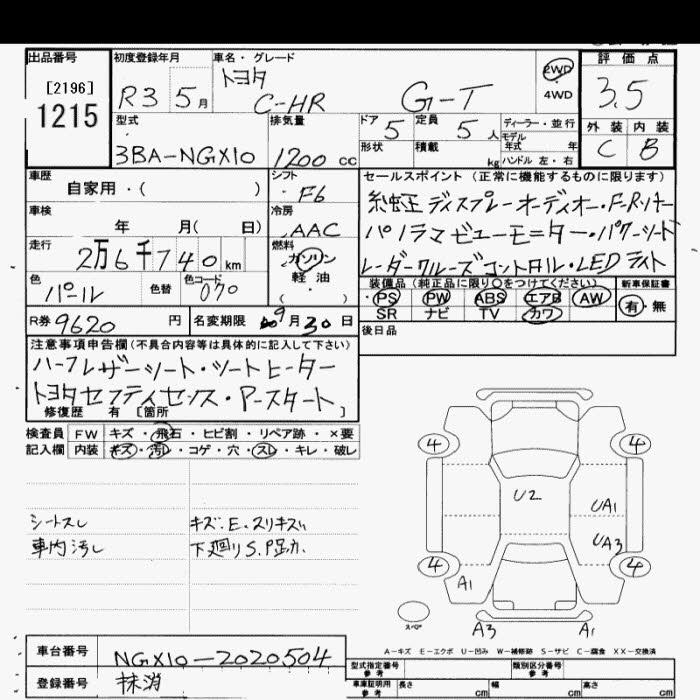 出品番号 初度登録年月 車名・グレード 評価点
[2196] R3 5月 トヨタ 2WD 3.5
1215 C-HR G-T 4WD
型式 排気量 ドア 5 定員 5人 ディーラー・並行 外装 内装
3BA-NGX10 1200cc 形状 積載 kg モデル年式 年 C B
ハンドル 左・右
車歴 シフト セールスポイント (正常に機能するものに限ります)
自家用・( ) F6 ディスプレーオーディオ・F-Rソナー
車検 冷房 パノラマビューモニター・パワーシート
年 月( 日) AAC レーダークルーズコントロール・LEDライト
走行 燃料
2万6千740km ガソリン 装備品 (純正品に限り○をつけてください) 新車保証書
色 色替 色コード 軽油 PS PW ABS エアB AW 有・無
パール 070 ・( ) SR ナビ TV カワ
R券 9620円 名変期限 9月30日 後日品
注意事項申告欄 (不具合内容等は具体的に記入して下さい)
ハーフレザーシート・シートヒーター
トヨタセーフティセンス・Pースタート
修復歴 有 [箇所 ]
検査員 FW キズ・飛石・ヒビ割・リペア跡・×要
記入欄 内装 キズ・汚レ・コゲ・穴・スレ・キレ・破レ
4 4
U2 UA1
シートスレ キズ.E.スリキズ
車内汚し 下廻りS. UA3
4 4
A1
スペア A3 A1
A-キズ E-エクボ U-凹み W-補修跡 S-サビ C-腐食 XX-交換済
車台番号 NGX10-2020504 型式指定番号 参考 類別区分番号 参考
登録番号 抹消 車庫証明用 参考 長さ cm 幅 cm 高さ cm